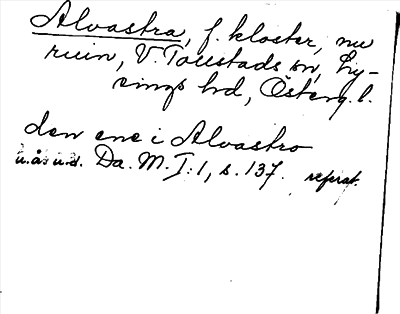 Alvastra, f. kloster, nu
ruin, V. Tollstads sn, Ly-
sings hd, Österg. l.
den ene i Alvastro
u.å.u.d. Da. M. I:1, s. 137. referat.